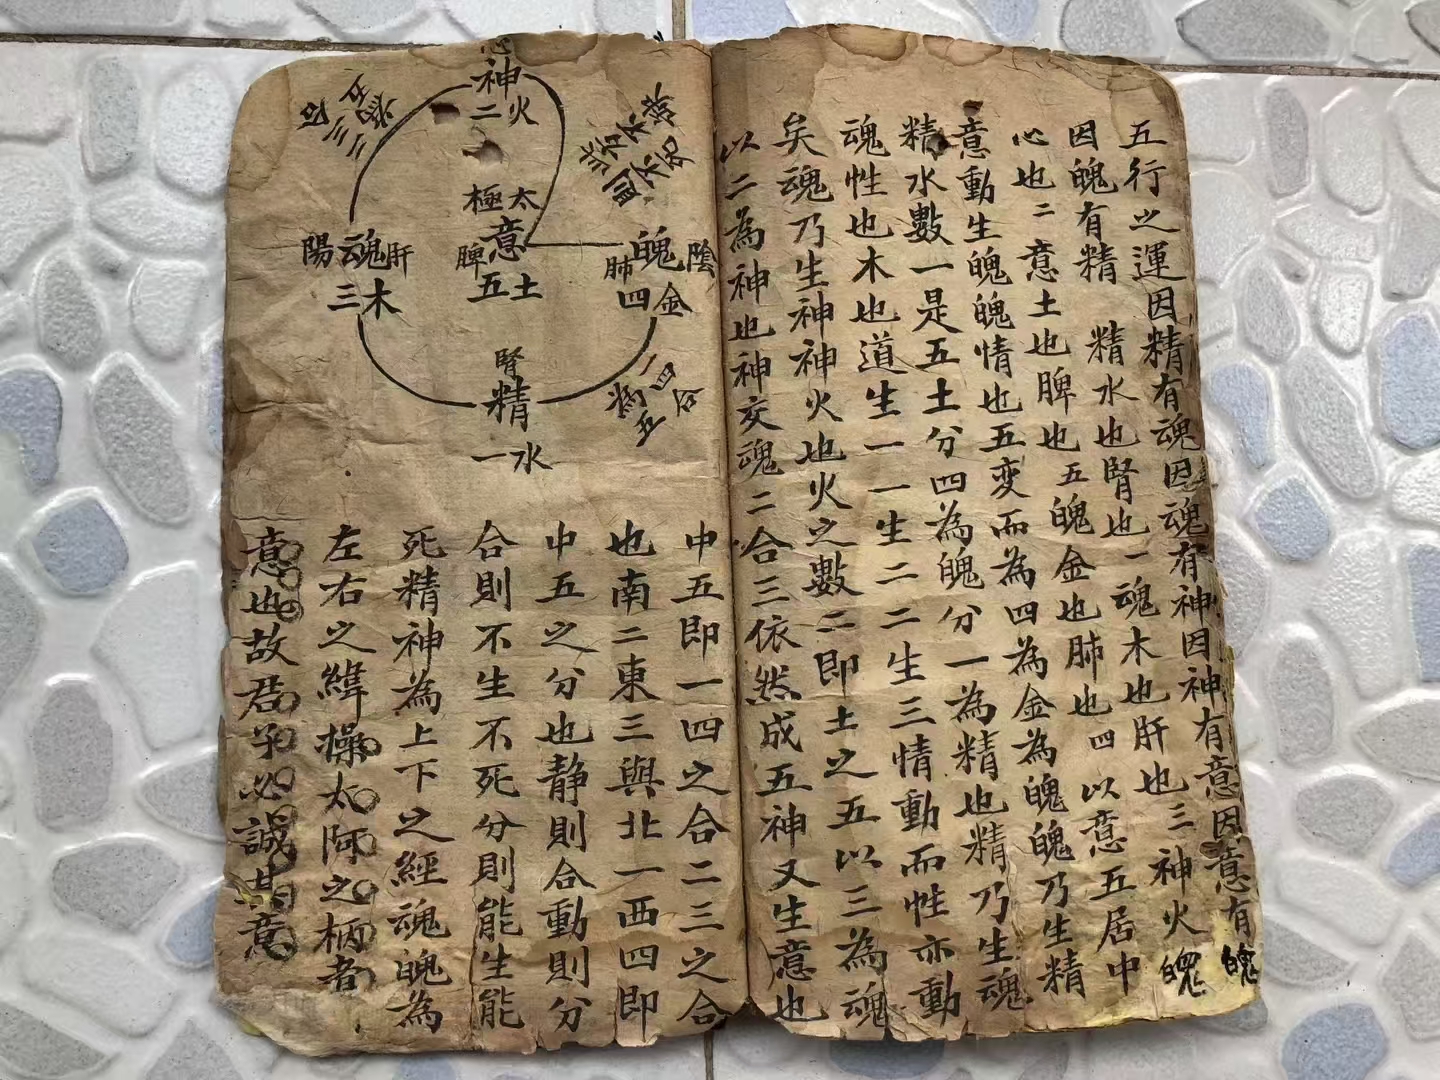 五行之運因精有魂因魂有神因神有意因意有魄
因魄有精 精水也腎也一魂木也肝也三神火魄
心也二意土也脾也五魄金也肺也四以意五居中
意動生魄魄情也五变而為四為金為魄魄乃生精
精水數一是五土分四為魄分一為精也精乃生魂
魂性也木也道生一一生二二生三情動而性亦動
矣魂乃生神神火也火之數二即土之五以三為魂
以二為神也神交魂二合三依然成五神又生意也
心
神
火二
太極
意
脾
土五
魄
肺
陰
金四
魂
肝
陽
木三
腎
精
水一
二三合為五
一四合為五
中五即一四之合二三之合
也南二東三與北一西四即
中五之分也静則合動則分
合則不生不死分則能生能
死精神為上下之經魂魄為
左右之緯操太阿之柄者
意也故君子必誠其意